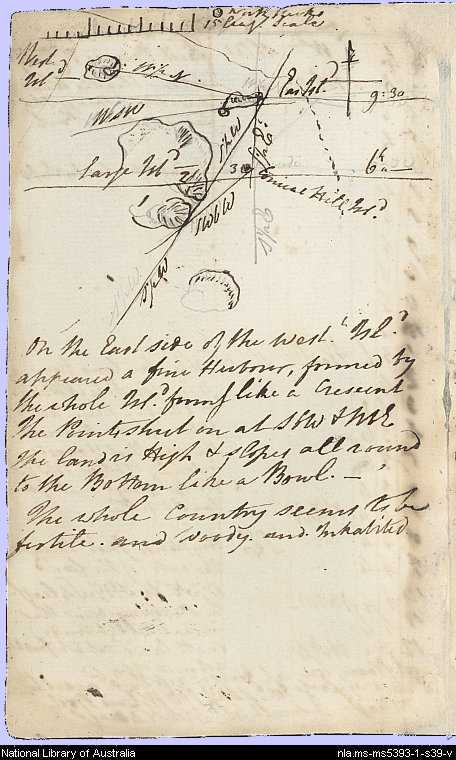 15 leag. Scale
West
Isl.d
WSW
East Isl.d
9:30
SbW
SbE
Large Isl.d
30
6h
Conical Hill Isl.d
SWbW
SbE
SbW
On the East side of the west. Isl.d
appeared a fine Harbour, formed by
the whole Isl.d forms like a Crescent
The Points shut on at SSW & NNE
The land is High & slopes all round
to the Bottom like a Bowl. —
The whole Country seems to be
fertile. and woody. and. Inhabited
National Library of Australia
nla.ms-ms5393-1-s39-v